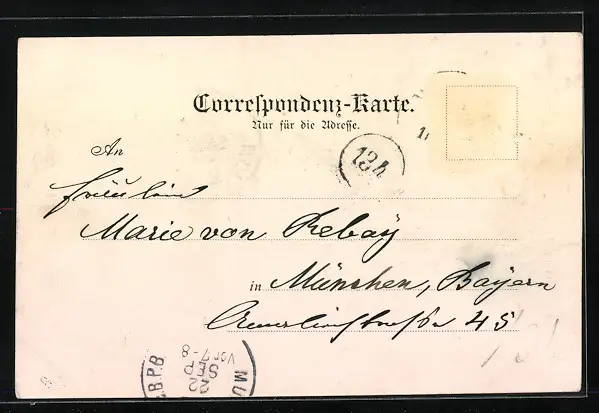 Correspondenz-Karte.
Nur für die Adresse.
134
An
Fräulein
Marie von Rebay
in München, Bayern
45
MÜ
B.P.B.
22
SEP
Vor 7-8